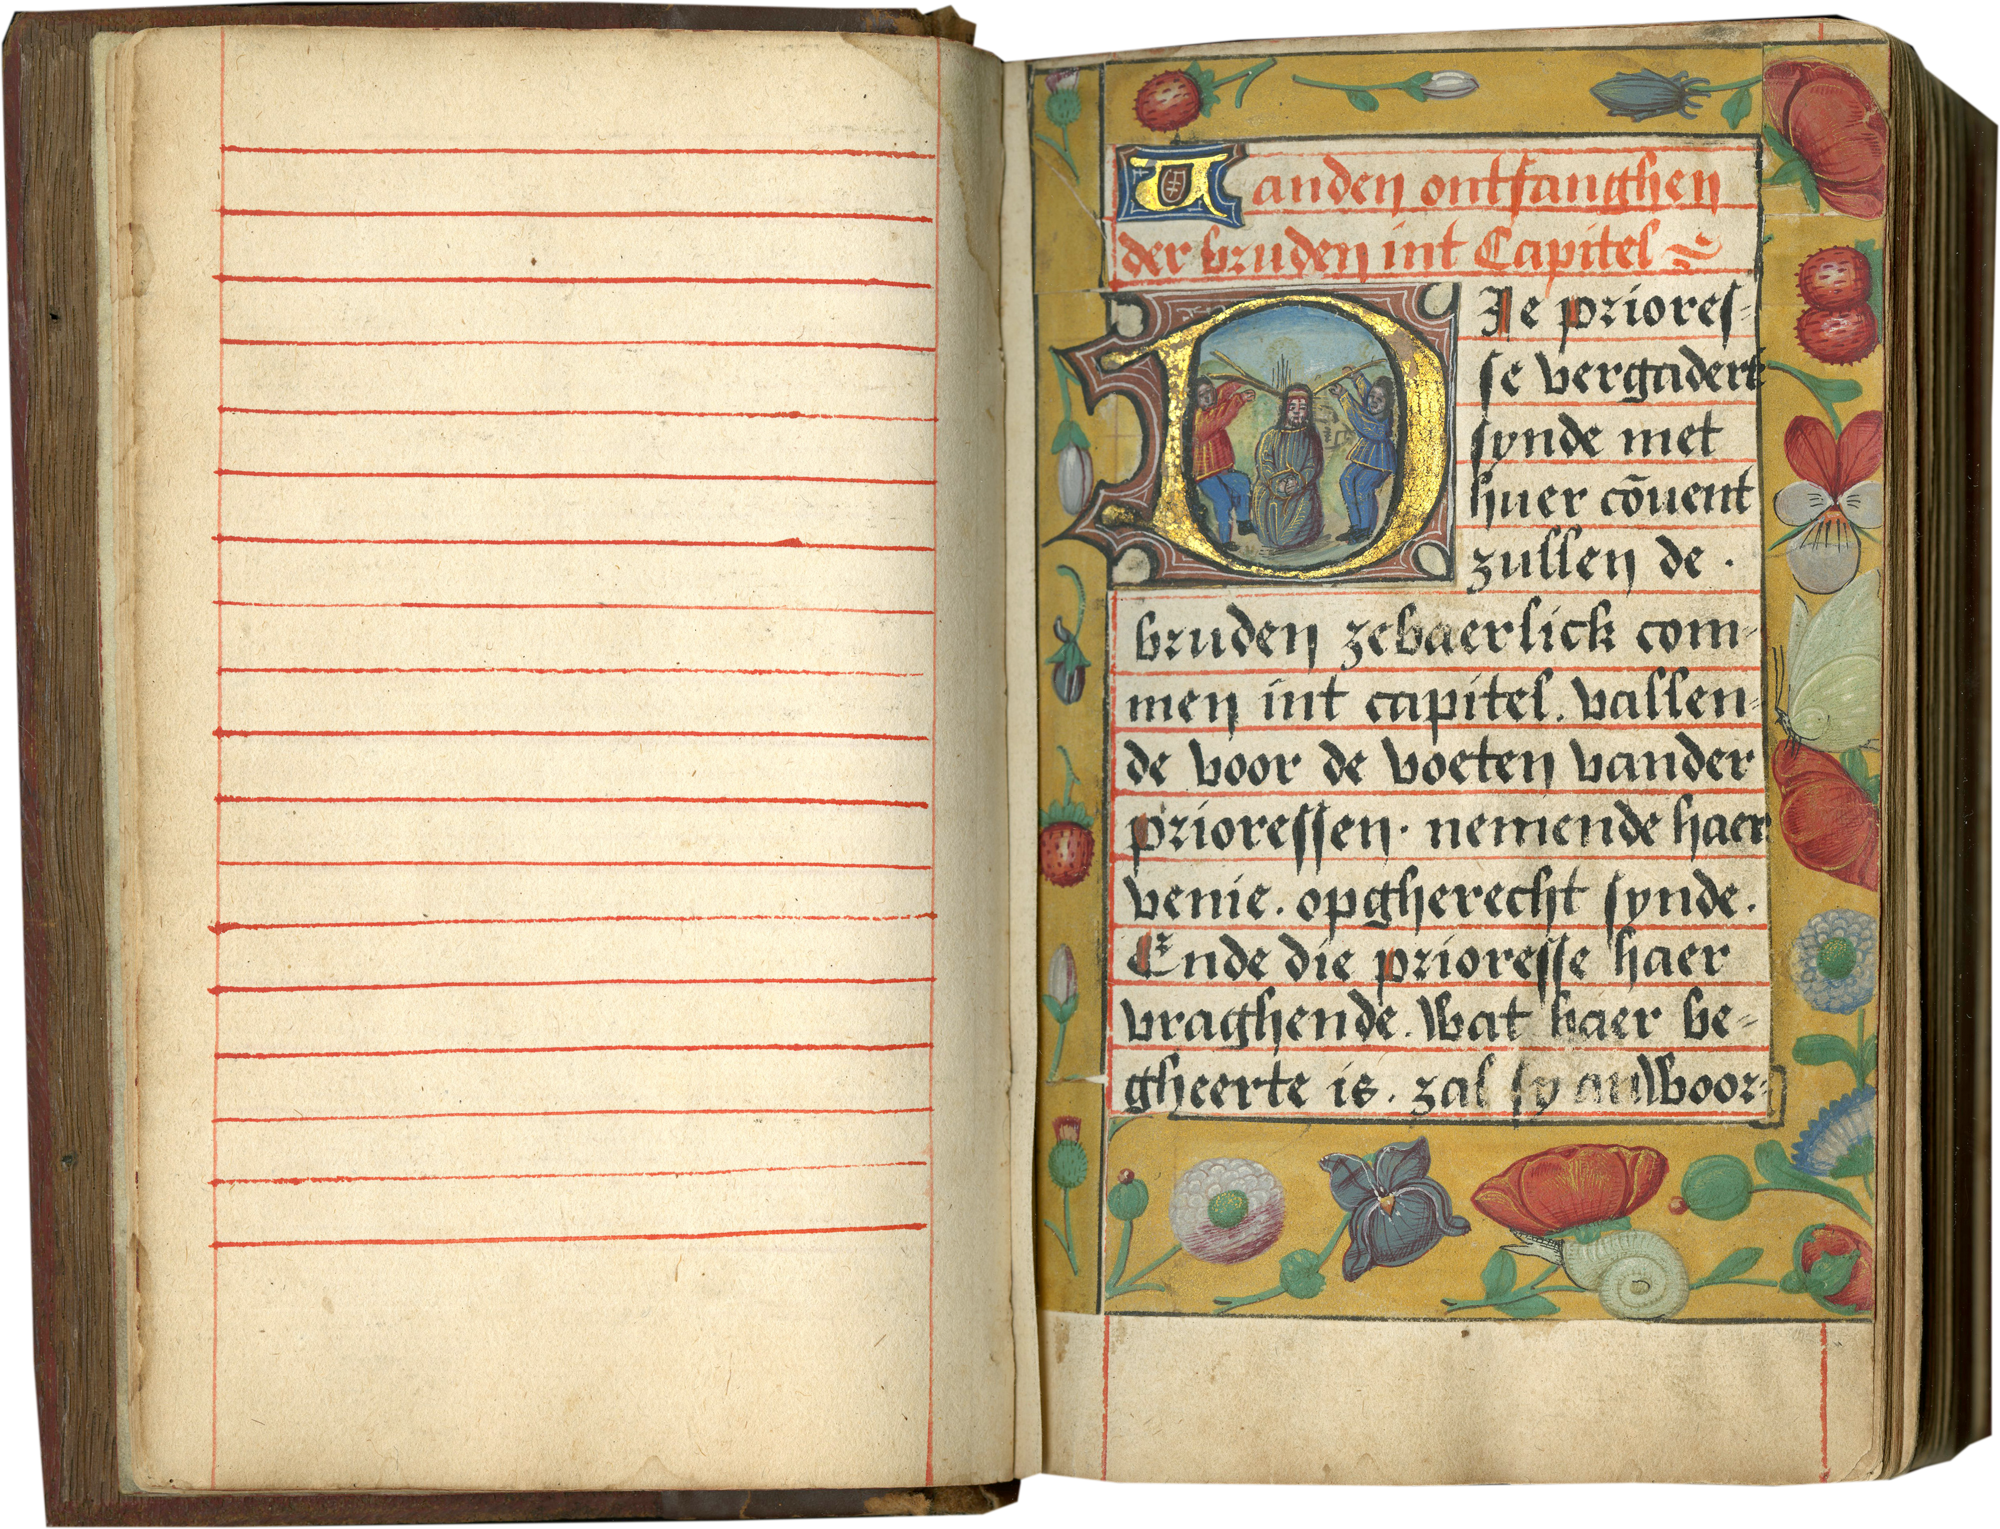 Vanden ontfanghen
der bruden int Capitel
DIe priores-
se vergadert
synde met
huer cōuent
zullen de .
bruden zebaerlick com-
men int capitel. vallen-
de voor de voeten vander
prioressen. nemende haer
venie. opgherecht synde.
Ende die prioresse haer
vraghende. Wat haer be-
gheerte is. zal sy andwoor-